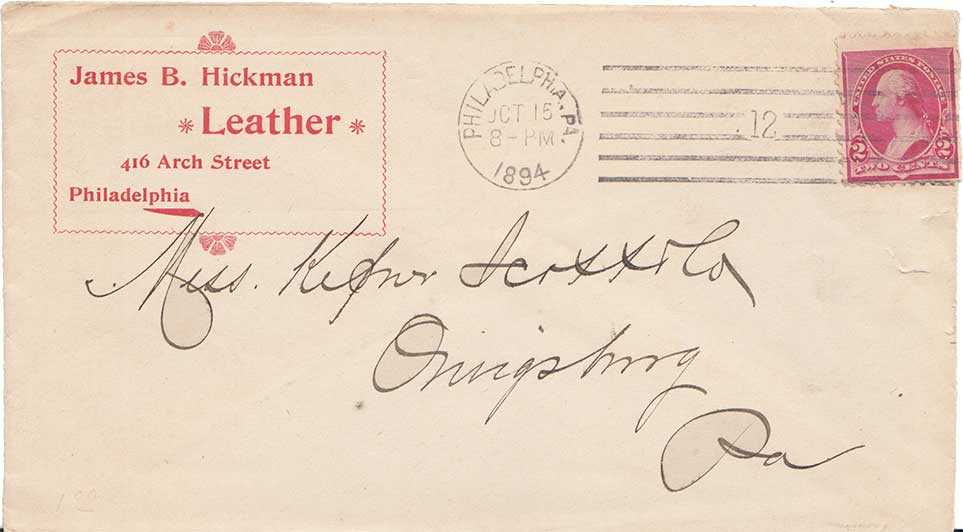 James B. Hickman
* Leather *
416 Arch Street
Philadelphia
PHILADELPHIA, PA.
OCT 15
8-PM
1894
12
UNITED STATES POSTAGE
2 2
TWO CENTS
Mess. Kepner Scott & Co
Orwigsburg
Pa